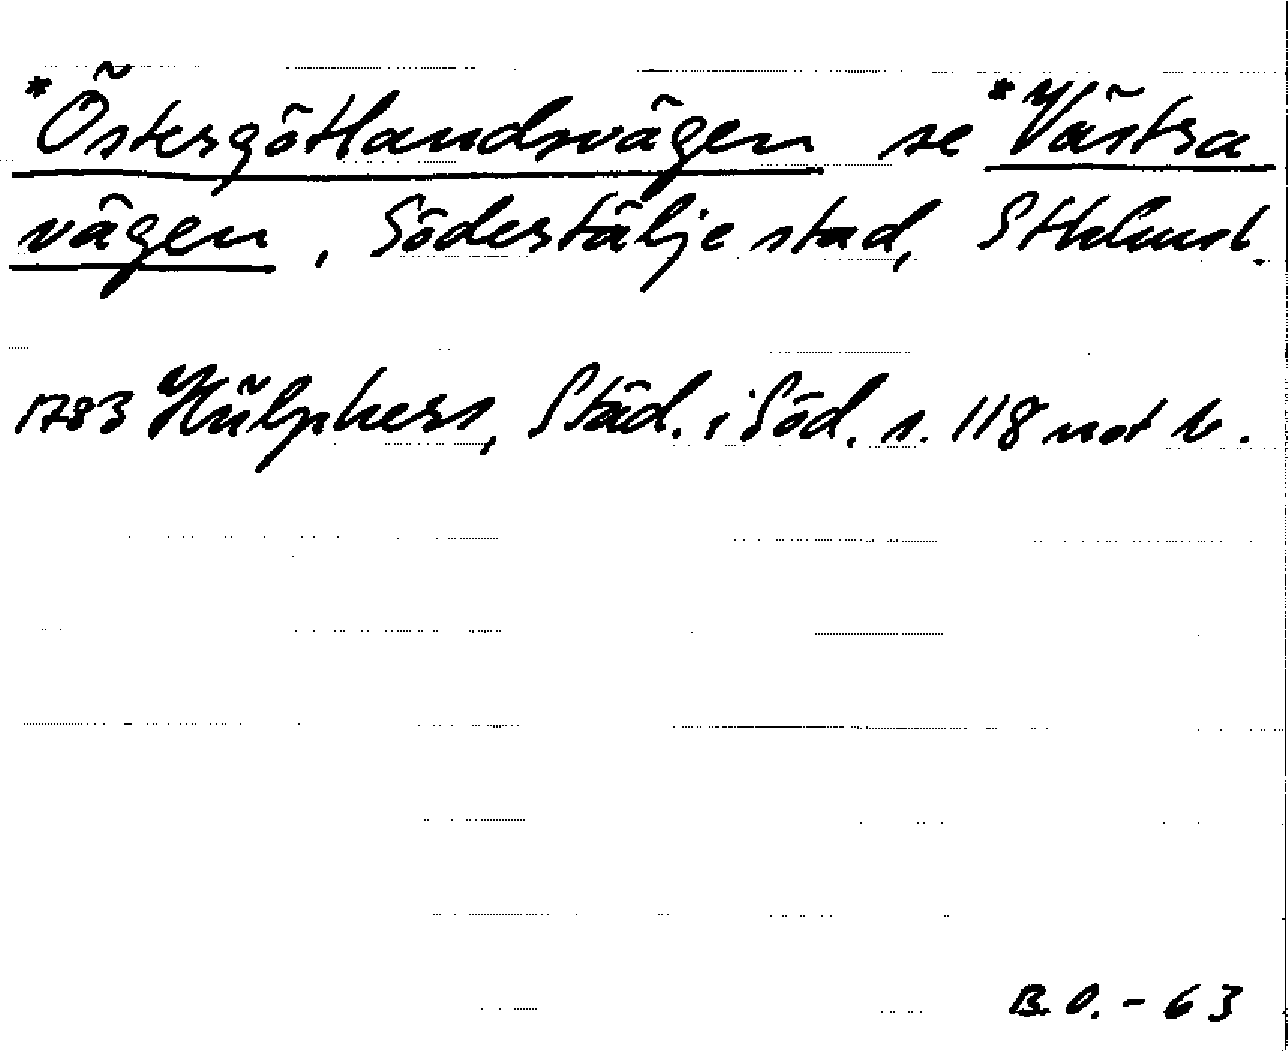 *Östergötlandsvägen se *Västra
vägen, Södertälje stad, Sthlms l.
1783 Hülphers, Städ. i Söd. s. 118 not b.
B.O. - 63